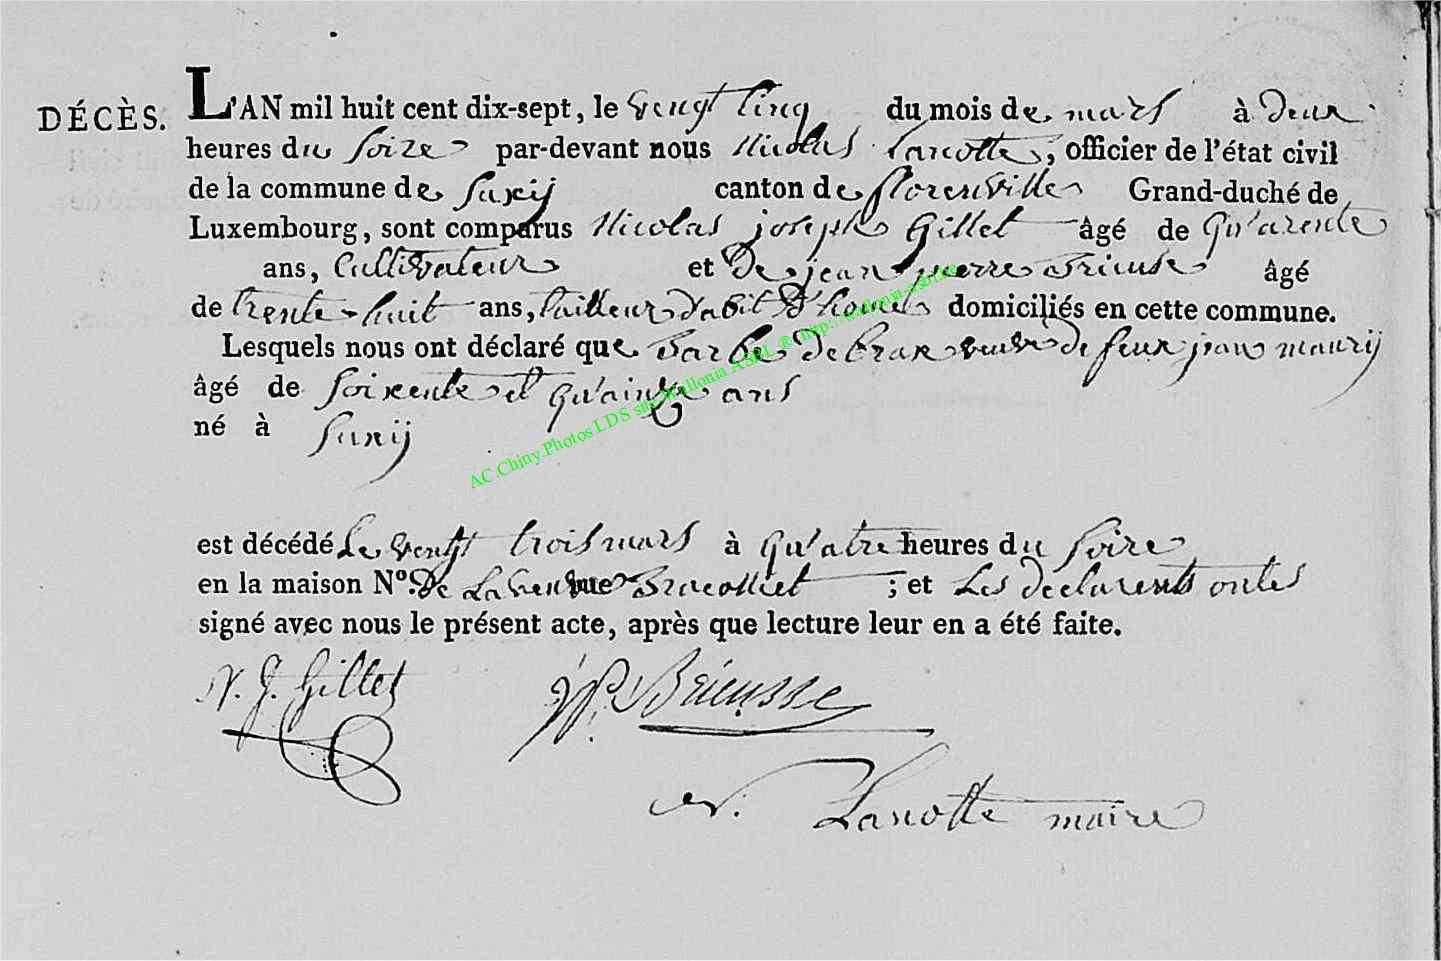 DÉCÈS. L'AN mil huit cent dix-sept, le vengt Cinq du mois de mars à deux
heures du Soire par-devant nous Nicolas Lanotte, officier de l'état civil
de la commune de Suxÿ canton de florenville Grand-duché de
Luxembourg, sont comparus Nicolas joseph Gillet âgé de Qu'arente
ans, Cultivateur et De jean pierre Brieuse âgé
de trente-huit ans, tailleur d'abit D'homes domiciliés en cette commune.
Lesquels nous ont déclaré que Barbe Debrax veuve De feux jean maurÿ
âgé de Soixente et Qu'ainze ans
né à Suxÿ
AC.Chiny.Photos LDS site Wallonia ASBL ® http://wallonia-asbl.be
est décédé Le vengt trois mars à Qu'atre heures du Soire
en la maison Nº. De La rue ; et Les declarents ontes
signé avec nous le présent acte, après que lecture leur en a été faite.
N. J. Gillet JP. Brieusse
N. Lanotte maire